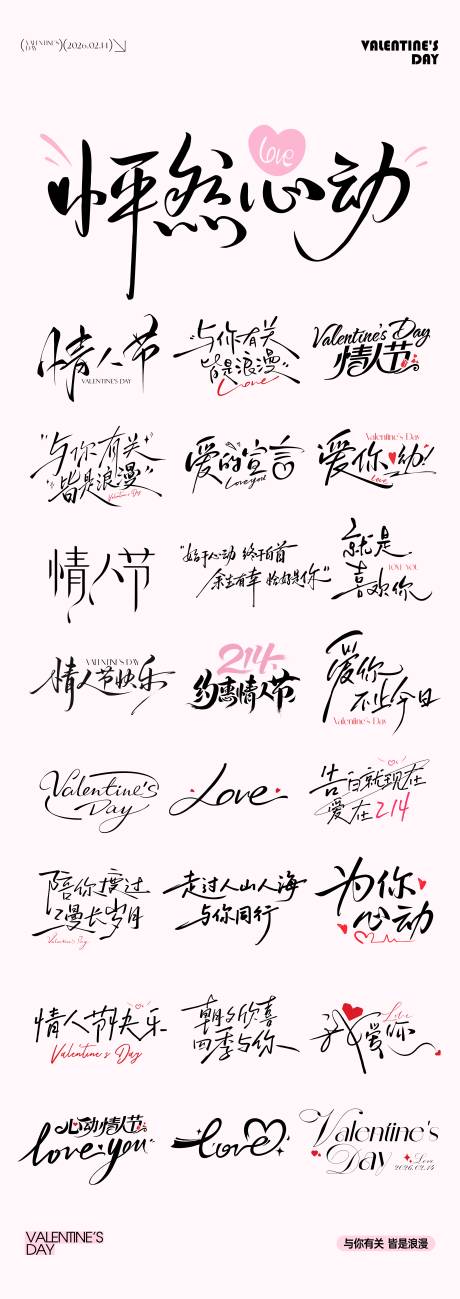 (VALENTINE'S
DAY)(2026.02.14)
VALENTINE'S
DAY
Love
怦然心动
情人节
VALENTINE'S DAY
与你有关
皆是浪漫
Love
Valentine's Day
情人节
"与你有关
皆是浪漫"
Valentine's Day
爱的宣言
Love you
Valentine's Day
爱你呦!
Love
情人节
"始于心动 终于白首
余生有幸 恰好是你"
就是
LOVE YOU
喜欢你
VALENTINE'S DAY
情人节快乐
214
约惠情人节
爱你
不止今日
Valentine's Day
Valentine's
Day
Love
告白就现在
爱在214
陪你度过
漫长岁月
Valentine's Day
走过人山人海
与你同行
为你
心动
情人节快乐
Valentine's Day
朝夕欣喜
四季与你
Love
我爱你
心动情人节
love you
love
Valentine's
Day
Love
2026.02.14
VALENTINE'S
DAY
与你有关 皆是浪漫